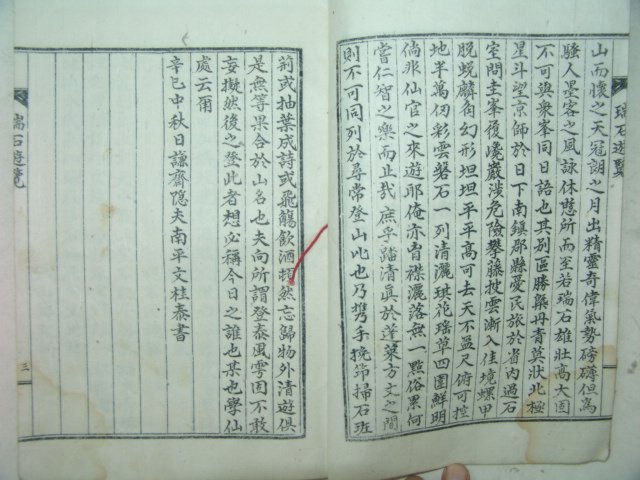 瑞石遊覽
山而懷之天冠朗之月出精靈奇偉氣勢磅礴但爲
騷人墨客之風詠休憩所而至若瑞石雄壯高大固
不可與衆峯同日語也其別區勝槩丹青莫狀北極
星斗望京師於日下南鎭郡縣愛民旅於省內過石
室問圭峯後巉巖濺危險攀藤披雲漸入佳境螺甲
脫蛻麟角幻形坦坦平平高可去天不盈尺俯可控
地半萬仞彩雲盤石一列淸灑琪花瑤草四圍鮮明
倘非仙官之來遊耶俺亦胷襟灑落無一點俗累何
嘗仁智之樂而止哉庶乎踏淸眞於蓬萊方丈之間
則不可同列於尋常登山比也乃携手挽筇掃石班
荊或抽葉成詩或飛觴飮酒頹然忘歸物外淸遊俱
是無等果合於山名也夫向所謂登泰風雩固不敢
妄擬然後之登此者想必稱今日之誰也某也學仙
處云爾
辛巳中秋日謙齋隱夫南平文桂泰書
瑞石遊覽
三